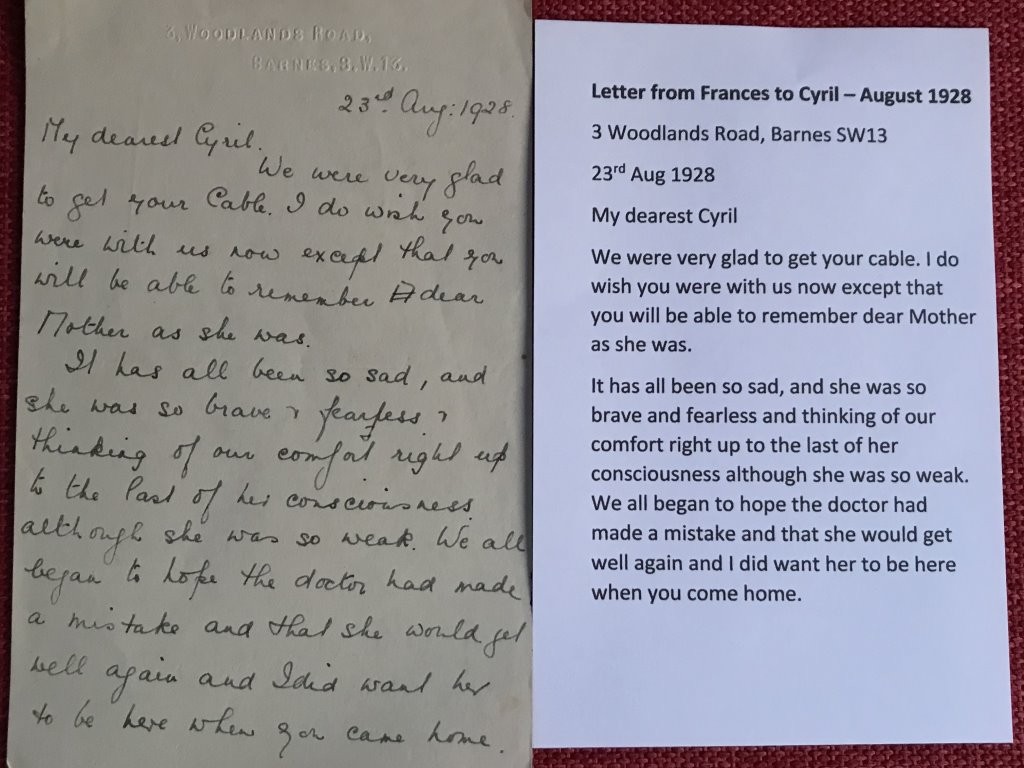 3, WOODLANDS ROAD,
BARNES, S.W.13.
23rd Aug: 1928.
My dearest Cyril.
We were very glad
to get your Cable. I do wish you
were with us now except that you
will be able to remember dear
Mother as she was.
It has all been so sad, and
she was so brave & fearless &
thinking of our comfort right up
to the last of her consciousness
although she was so weak. We all
began to hope the doctor had made
a mistake and that she would get
well again and I did want her
to be here when you came home.
Letter from Frances to Cyril – August 1928
3 Woodlands Road, Barnes SW13
23rd Aug 1928
My dearest Cyril
We were very glad to get your cable. I do
wish you were with us now except that
you will be able to remember dear Mother
as she was.
It has all been so sad, and she was so
brave and fearless and thinking of our
comfort right up to the last of her
consciousness although she was so weak.
We all began to hope the doctor had
made a mistake and that she would get
well again and I did want her to be here
when you come home.